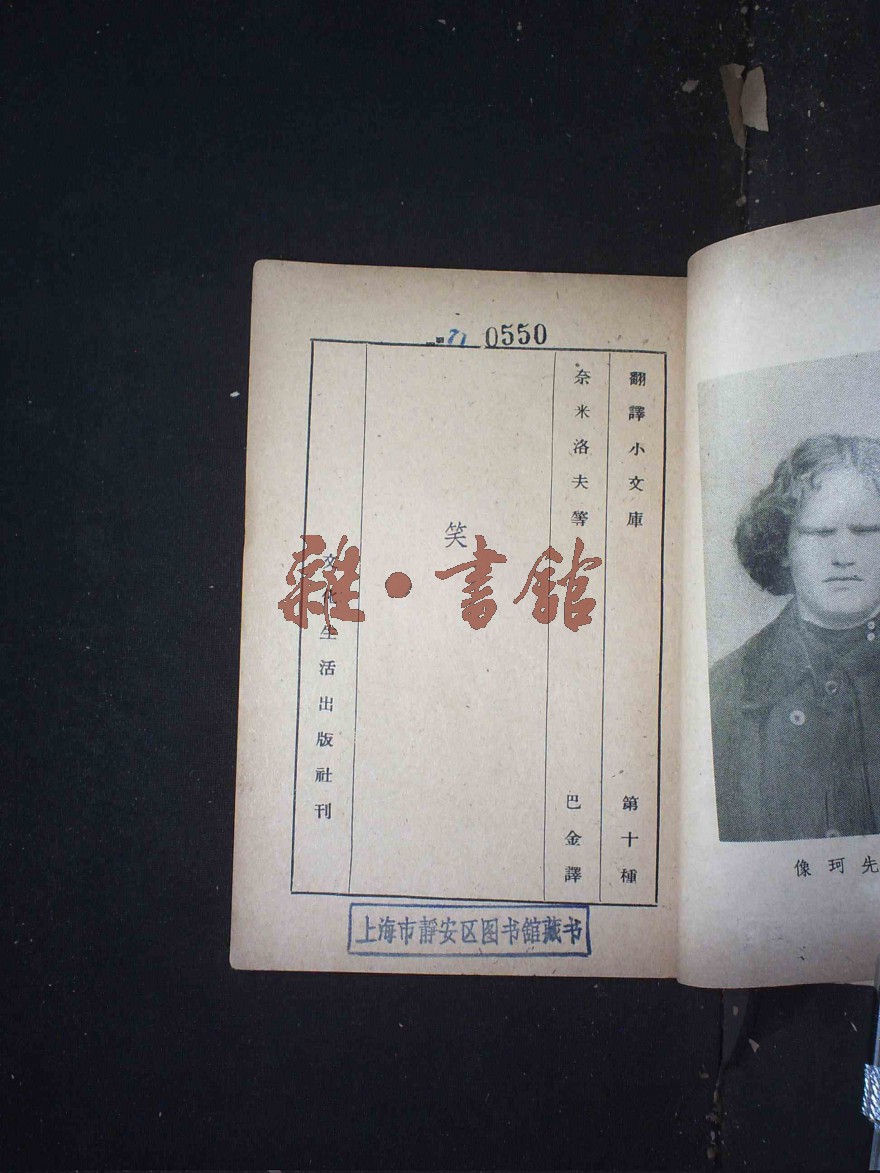 0550
翻譯小文庫 第十種
奈米洛夫等 巴金譯
笑
文化生活出版社刊
雜·書館
上海市靜安区图书館藏书
先珂像